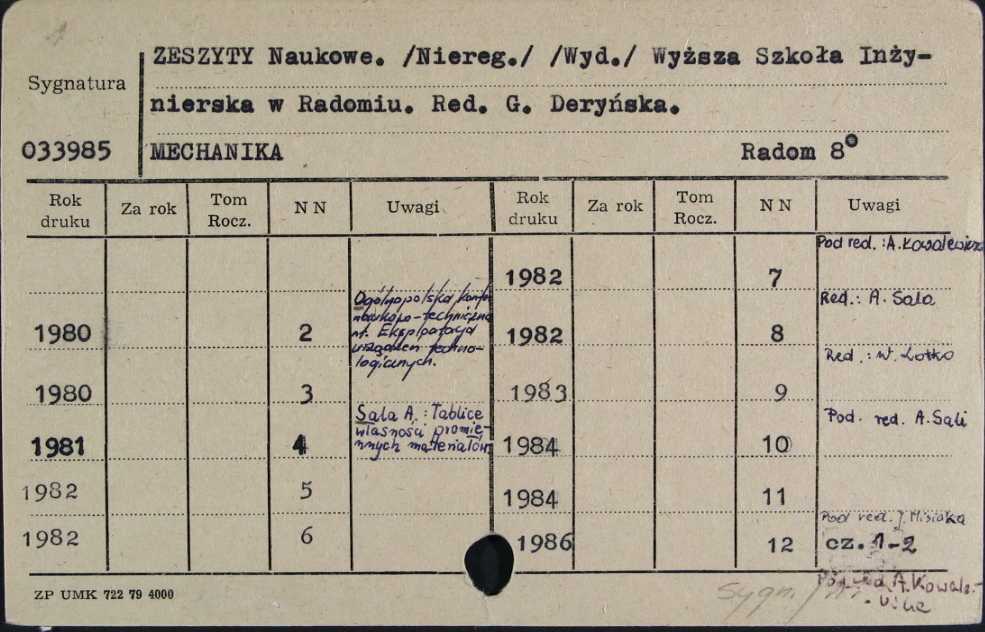 ZESZYTY Naukowe. /Niereg./ /Wyd./ Wyższa Szkoła Inży-
Sygnatura
nierska w Radomiu. Red. G. Deryńska.
033985 MECHANIKA Radom 8°
Rok druku Za rok Tom Rocz. N N Uwagi Rok druku Za rok Tom Rocz. N N Uwagi
Pod red.: A. Kowalewicz
1982 7
Ogólnopolska konfer.
naukowo-techniczna
nt. Eksploatacja
urządzeń techno-
logicznych.
1980 2
Red.: A. Sala
1982 8
1980 3
Red.: W. Lotko
1983 9
Sala A.: Tablice
własności promie-
nnych materiałów
1981 4
Pod. red. A. Sali
1984 10
1982 5
1984 11
1982 6
Pod red. J. Misiaka
1986 12 cz. 1-2
Pod red. A. Kowale-
wicza
ZP UMK 722 79 4000
Sygn.